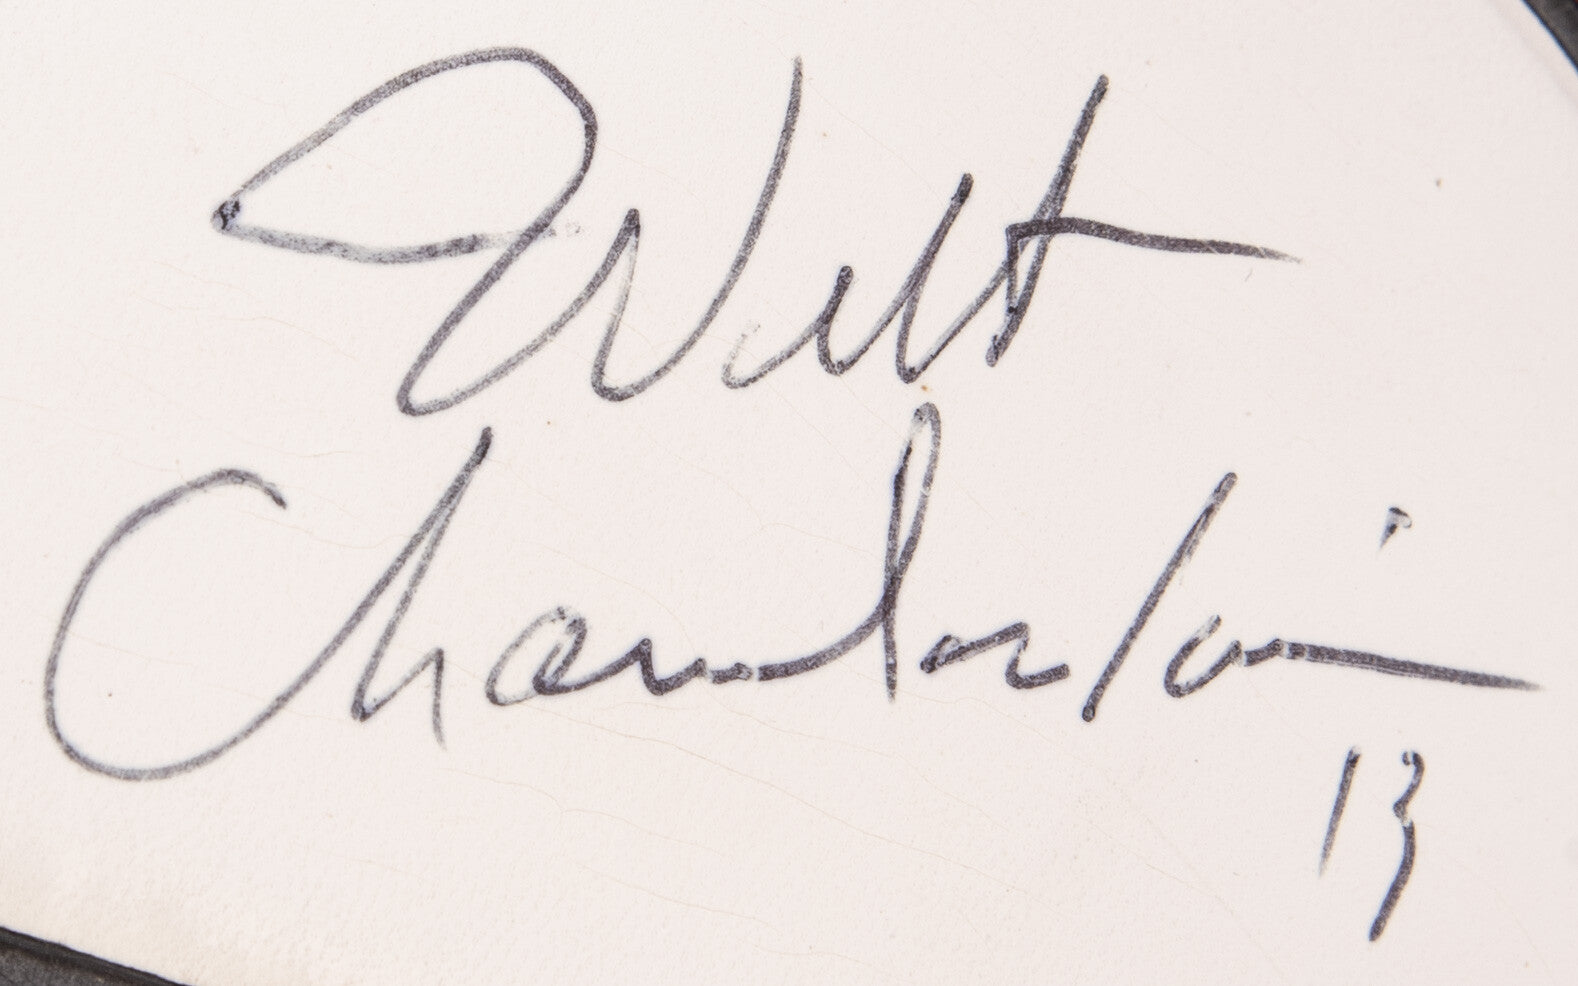 Wilt
Chamberlain
13